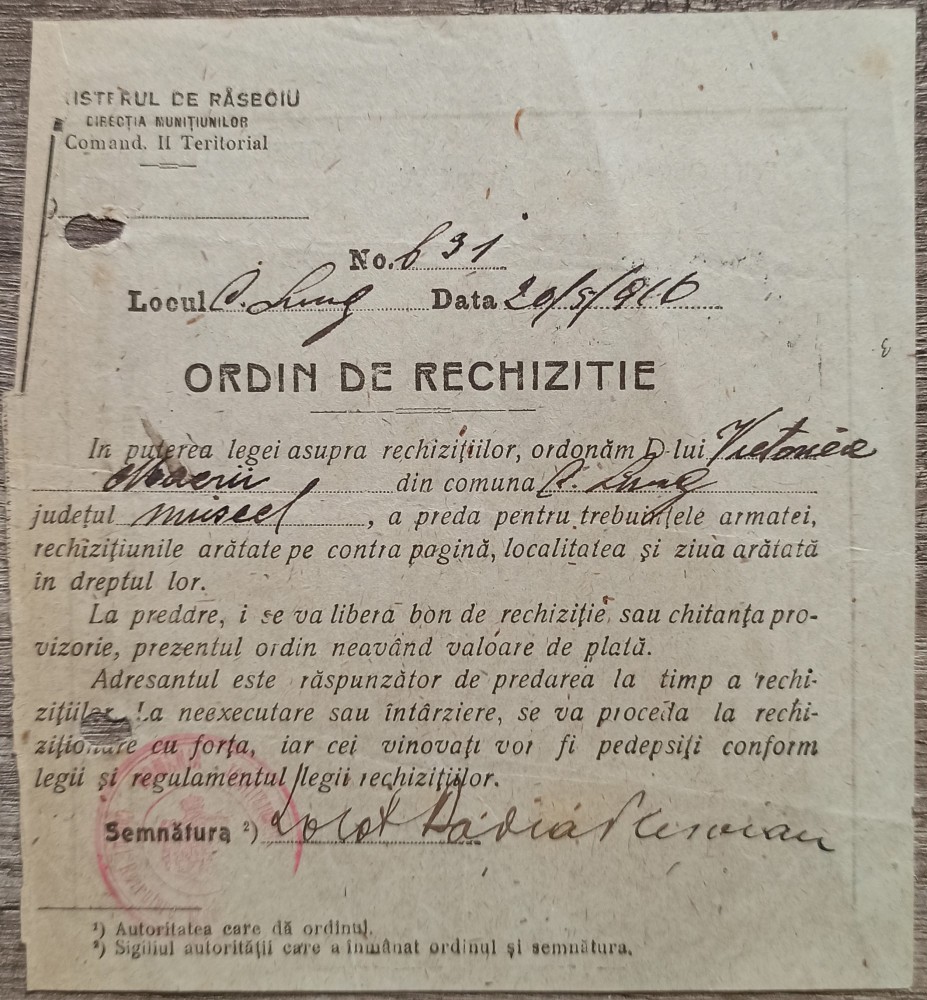 ISTERUL DE RĂSBOIU
DIRECȚIA MUNIȚIUNILOR
Comand. II Teritorial
No. 631
Locul C. Lung Data 20/9/916
ORDIN DE RECHIZITIE
In puterea legei asupra rechizițiilor, ordonăm D-lui Victoria
din comuna C. Lung
județul muscel, a preda pentru trebuințele armatei,
rechizițiunile arătate pe contra pagină, localitatea și ziua arătată
în dreptul lor.
La predare, i se va liberà bon de rechiziție sau chitanța pro-
vizorie, prezentul ordin neavând valoare de plată.
Adresantul este răspunzător de predarea la timp a rechi-
zițiilor. La neexecutare sau întârziere, se va proceda la rechi-
ziționare cu forța, iar cei vinovați vor fi pedepsiți conform
legii și regulamentul legii rechizițiilor.
Semnătura ²)
¹) Autoritatea care dă ordinul.
²) Sigiliul autorității care a înmânat ordinul și semnătura.